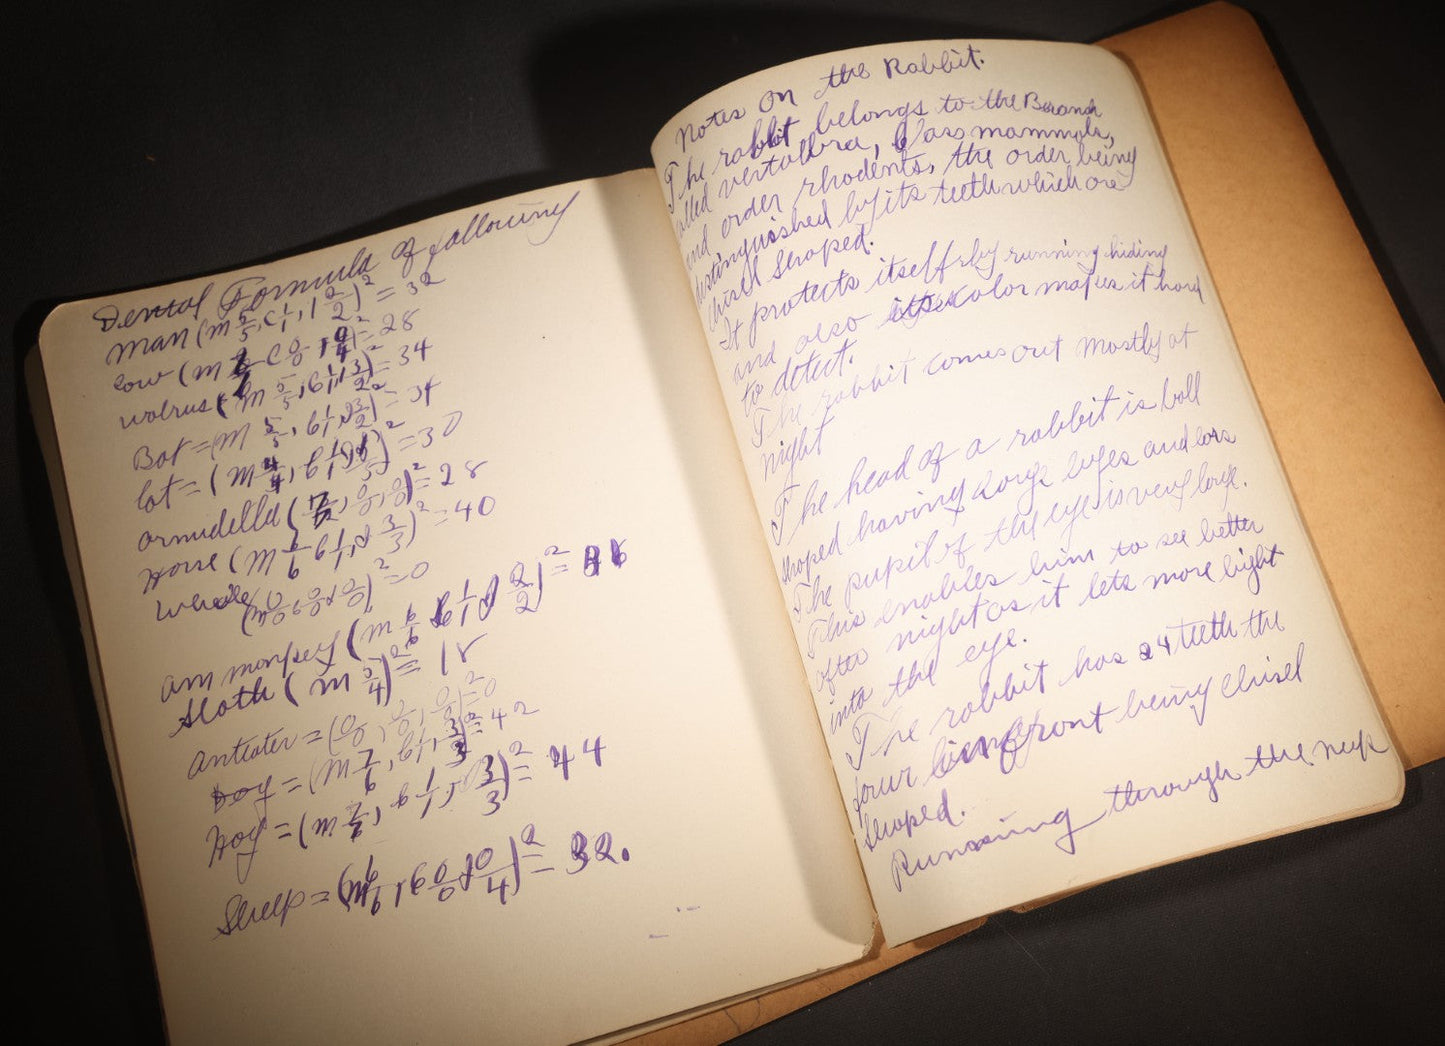 Dental Formula of following
man (m 5/5, c 1/1, 1 2/2)² = 32
cow (m c 0/0 0/4)² = 28
walrus (m 5/5, 61/1, 1 3/2)² = 34
Bat = (m 5/5, 61/1, 3/2)² = 34
Cat = (m 4/4, 61/1)² = 30
armudella ( , 0/0, 0/0)² = 28
Horse (m 6 1/1 3/3)² = 40
Whale (m 0/0, 0/0, 0/0)² = 0
am monkey (m 1/1 2/2)² =
Sloth (m 5/4)² = 18
Anteater = (0/0, 0/0, 0/0)² = 0
Dog = (m , 61/1, 3/3)² = 42
Hog = (m , 1/1, 3/3)² = 44
Sheep = (m 0/0 0/4)² = 32.
Notes On the Rabbit.
The rabbit belongs to the Branch
called vertabbra, Class mammals,
and order rhodents, the order being
distinguished by its teeth which are
chisel shaped.
It protects itself by running, hiding
and also its color makes it hard
to detect.
The rabbit comes out mostly at
night
The head of a rabbit is ball
shaped having large eyes and ears
The pupil of the eye is very large.
This enables him to see better
after night as it lets more light
into the eye.
The rabbit has 24 teeth the
four in front being chisel
shaped.
Running through the neck